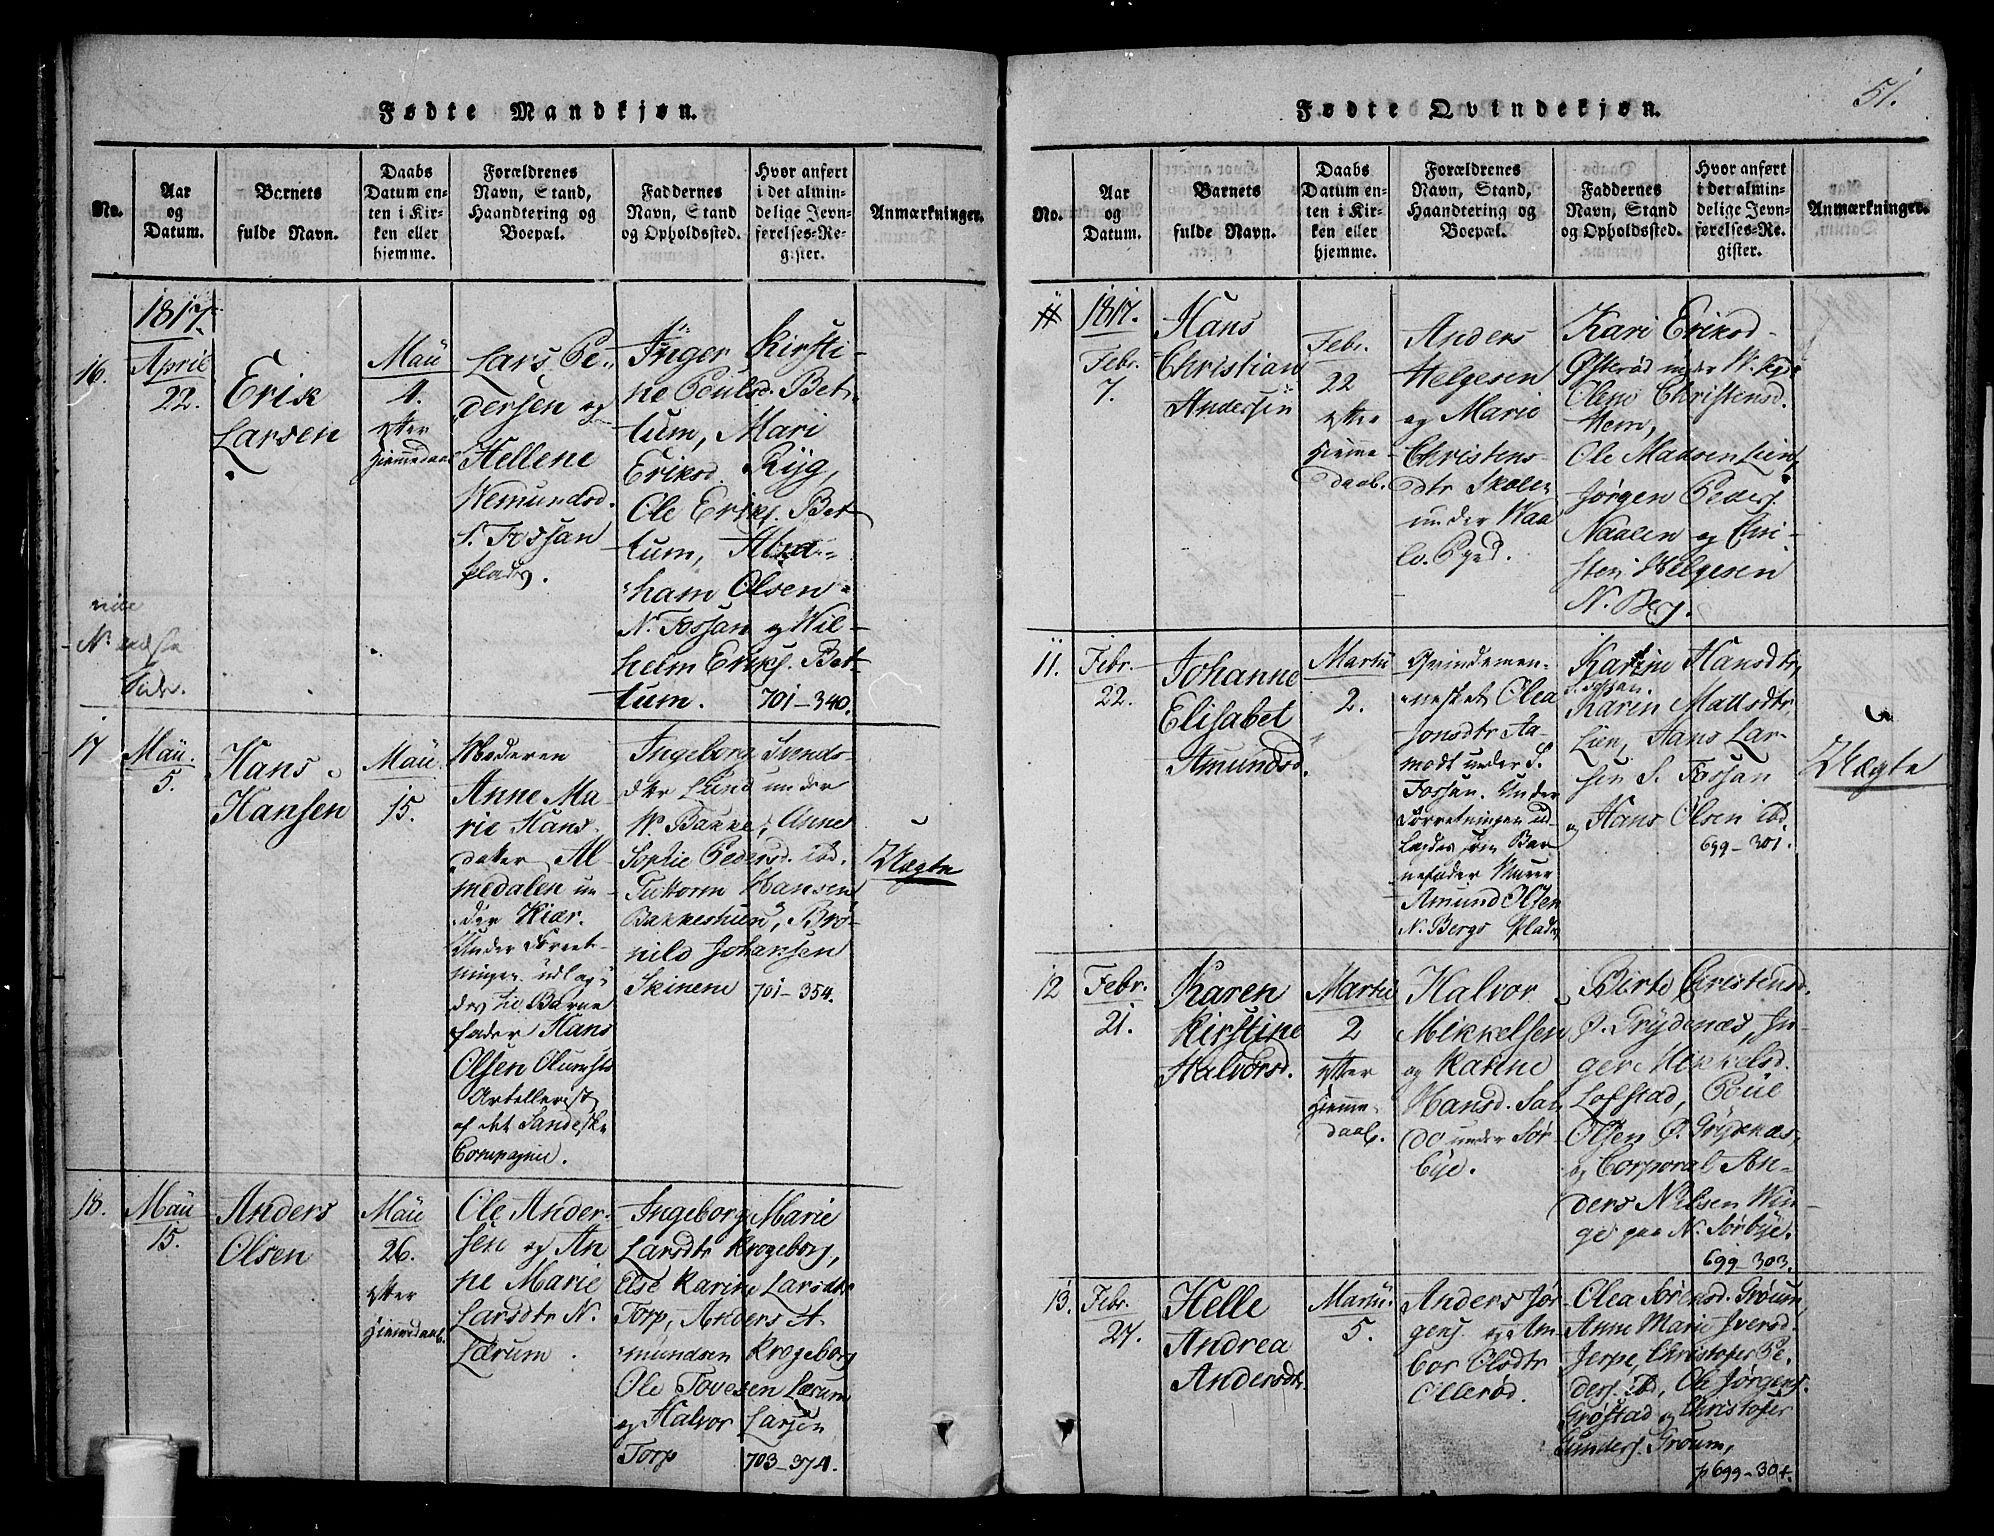 Fødte Mandkjøn.
No.
Aar
og
Datum.
Barnets
fulde Navn.
Daabs
Datum en-
ten i Kir-
ken eller
hjemme.
Forældrenes
Navn, Stand,
Haandtering og
Boepæl.
Faddernes
Navn, Stand
og Opholdssted.
Hvor anført
i det almin-
delige Jevn-
førelses-Re-
gister.
Anmærkninger.
1817.
16.
April
22.
Erik
Larsen
Maii
4.
efter
Hiemmedaab
Lars Pe-
dersen og
Hellene
Wemundsd.
S. Fossan
plads.
Inger Kirsti-
ne Poulsd. Bet-
tum, Mari
Eriksd. Ryg,
Ole Eriks. Bet
tum, Abra-
ham Olsen
N. Fossan og Wil-
helm Eriks. Bet-
tum. 701-340.
vide
N. næste
Side.
17
Maii.
5.
Hans
Hansen
Maii
15.
Moderen
Anne Ma-
rie Hans-
datter Al-
medalen un-
der Kiær.
Under Forret-
ningen udlag-
des til Barne
fader Hans
Olsen
Artellerist
af det Landske
Compagnie.
Ingeborg Svends-
dtr Lund under
N. Bakke, Anne
Sophie Pedersd. ibd.
Guttorm Hansen
Bakkeshuus, Brø-
nild Johansen
Skinene 701-354.
Uægte
18.
Maii
15.
Anders
Olsen
Maii
26.
efter
Hiemmedaab.
Ole Ander-
sen og An
ne Marie
Larsdtr N.
Lærum
Ingeborg Marie
Larsdtr Krogeborg,
Else Karine Larsdtr
Torp, Anders A-
mundsen Krogeborg
Ole Tovesen Lærum
og Halvor Larsen
Torp 703-374.
51.
Fødte Qvindekjøn.
No.
Aar
og
Datum.
Barnets
fulde Navn.
Daabs
Datum en-
ten i Kir-
ken eller
hjemme.
Forældrenes
Navn, Stand,
Haandtering og
Boepæl.
Faddernes
Navn, Stand
og Opholdssted.
Hvor anført
i det almin-
delige Jevn-
førelses-Re-
gister.
Anmærkninger.
1817.
Febr.
7.
Hans
Christian
Andersen
Febr.
22
efter
Hiemme
daab.
Anders
Helgesen
og Marie
Christens-
dtr Skolen
under Waa
ler Pgd.
Kari Eriksd.
Østerød under W.
Olene Christensd.
Hem,
Ole Madsen Lien,
Jørgen Peders.
Naalen og Chri-
sten Helgesen
N. Berg.
11.
Febr.
22.
Johanne
Elisabet
Amundsd.
Martii
2.
Qvindemen-
nesket Olea
Jonsdtr Aa-
modt under S.
Fossan. Under
Forretningen ud-
lagdes som Bar
nefader Murer
Amund Olsen
N. Bergs Plads
Karine Hansdtr,
S. Fossan.
Karen Madsdtr
Lien, Hans Lar-
sen S. Fossan
og Hans Olsen ibd
699-301.
Uægte
12
Febr.
21.
Karen
Kirstine
Halvorsd.
Martii
2
efter
Hiemme-
daab.
Halvor
Mikkelsen
og Karine
Hansd. San
do under Sør-
bye.
Birte Christensd.
Ø. Grydenæs, In-
ger Mikkelsd.
Lofstad, Poul
Olsen Ø. Grydenæs,
og Corporal An-
ders Nilsen Win-
ge paa N. Sørbye.
699-303.
13.
Febr.
27.
Helle
Andrea
Andersdtr.
Martii
5.
Anders Jør-
gens. og Am
bor Olsdtr
Ollerød.
Olea Sørensd. Groum,
Anne Marie Iversd.
Jerpe, Christofer Pe-
ders. ibd, Ole Jørgens.
Grøstad og Christofer
Gunders. Groum,
p699-304.